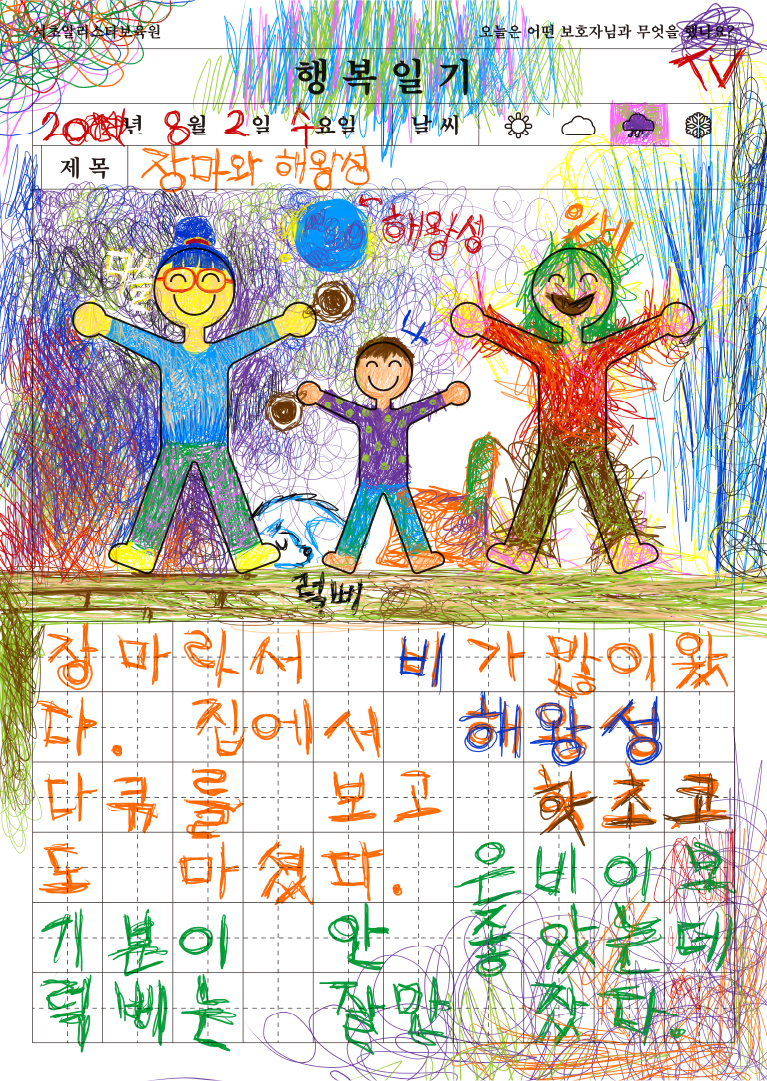 서초알러스타보육원 오늘은 어떤 보호자님과 무엇을 했나요?
TV
행복일기
년 8월 2일 수요일 날씨
제목 장마와 해왕성
해왕성
나
럭삐
장마라서 비가 많이왔
다. 집에서 해왕성
다큐를 보고 핫초코
도 마셨다. 은비이모
기분이 안 좋았는데
럭삐는 잘만 잤다.